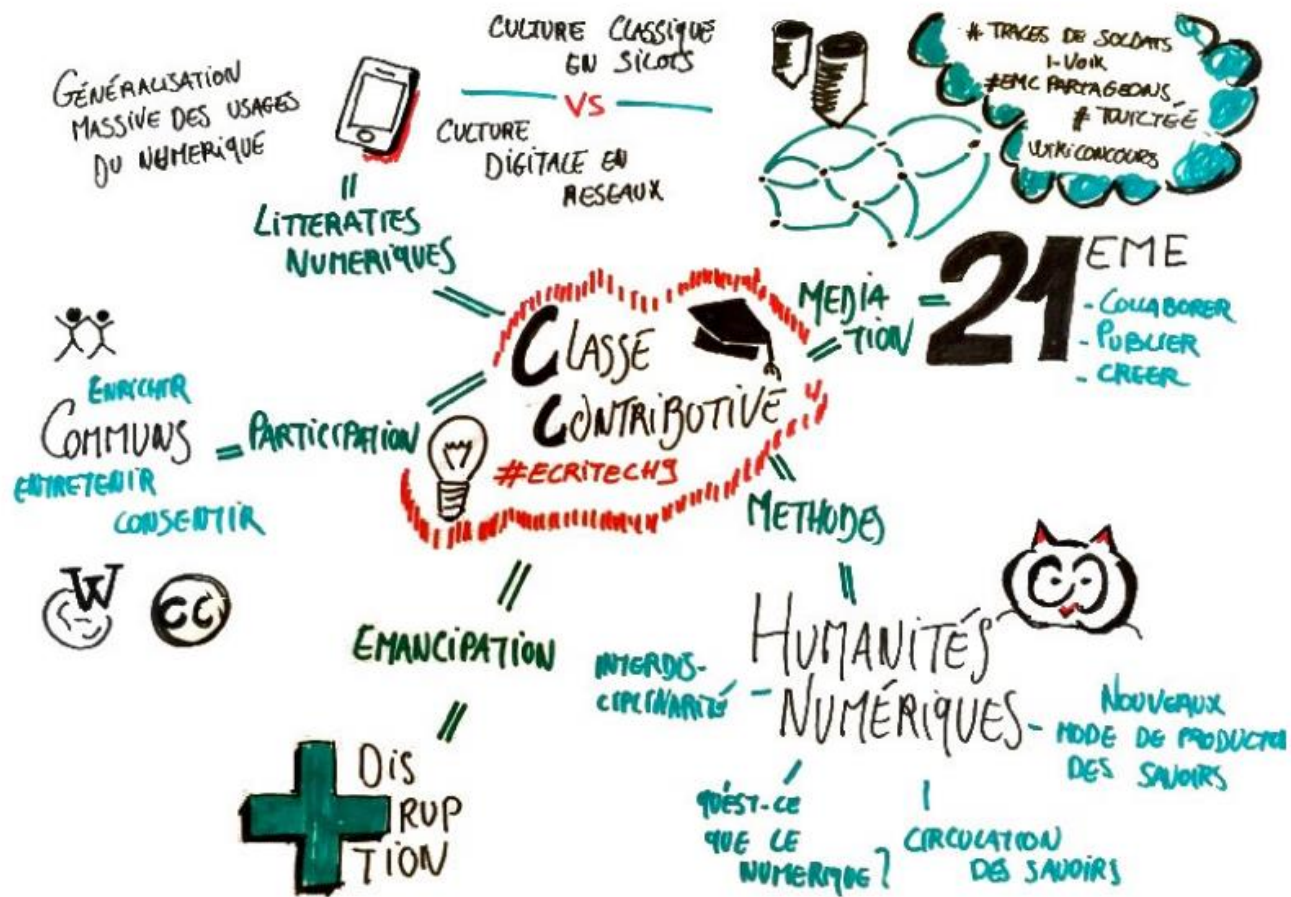 GÉNÉRALISATION
MASSIVE DES USAGES
DU NUMERIQUE
CULTURE CLASSIQUE
EN SILOTS
VS
CULTURE
DIGITALE EN
RESEAUX
# TRACES DE SOLDATS
I-VOIX
#EMC PARTAGEONS
# TOUICTÉÉ
WIKICONCOURS
LITTERATIES
NUMERIQUES
MEDIA
TION
21 EME
- COLLABORER
- PUBLIER
- CREER
CLASSE
CONTRIBUTIVE
#ECRITECH9
ENRICHIR
COMMUNS
ENTRETENIR
CONSENTIR
PARTICIPATION
W
CC
METHODES
EMANCIPATION
DIS
RUP
TION
HUMANITÉS
NUMÉRIQUES
INTERDIS-
CIPLINARITÉ
NOUVEAUX
MODE DE PRODUCTIO
DES SAVOIRS
QU'EST-CE
QUE LE
NUMERIQUE ?
CIRCULATION
DES SAVOIRS